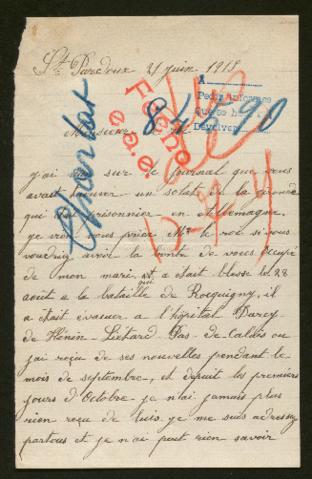 St Pardoux 21 juin 1915
A
Devolver
Monsieur
84590
Feceho
e.a.e.
j'ai vu sur le journal que vous
avait trouver un soldat de la gironde
qui était prisonnier en Allemagne
je vien vous prier Mr le roi si vous
voudriez avoir la bonté de vous occupé
de mon mari qui a était blessé le 28
août a la bataille de Rocquigny, il
a était évacuer a l'hôpital Darcy
de Hénin-Liétard Pas-de-Calais ou
j'ai reçu de ses nouvelles pendant le
mois de septembre, et depuit les premiers
jours d'Octobre je n'ai jamais plus
rien reçu de luis je me suis adressez
partous et je n'ai put rien savoir